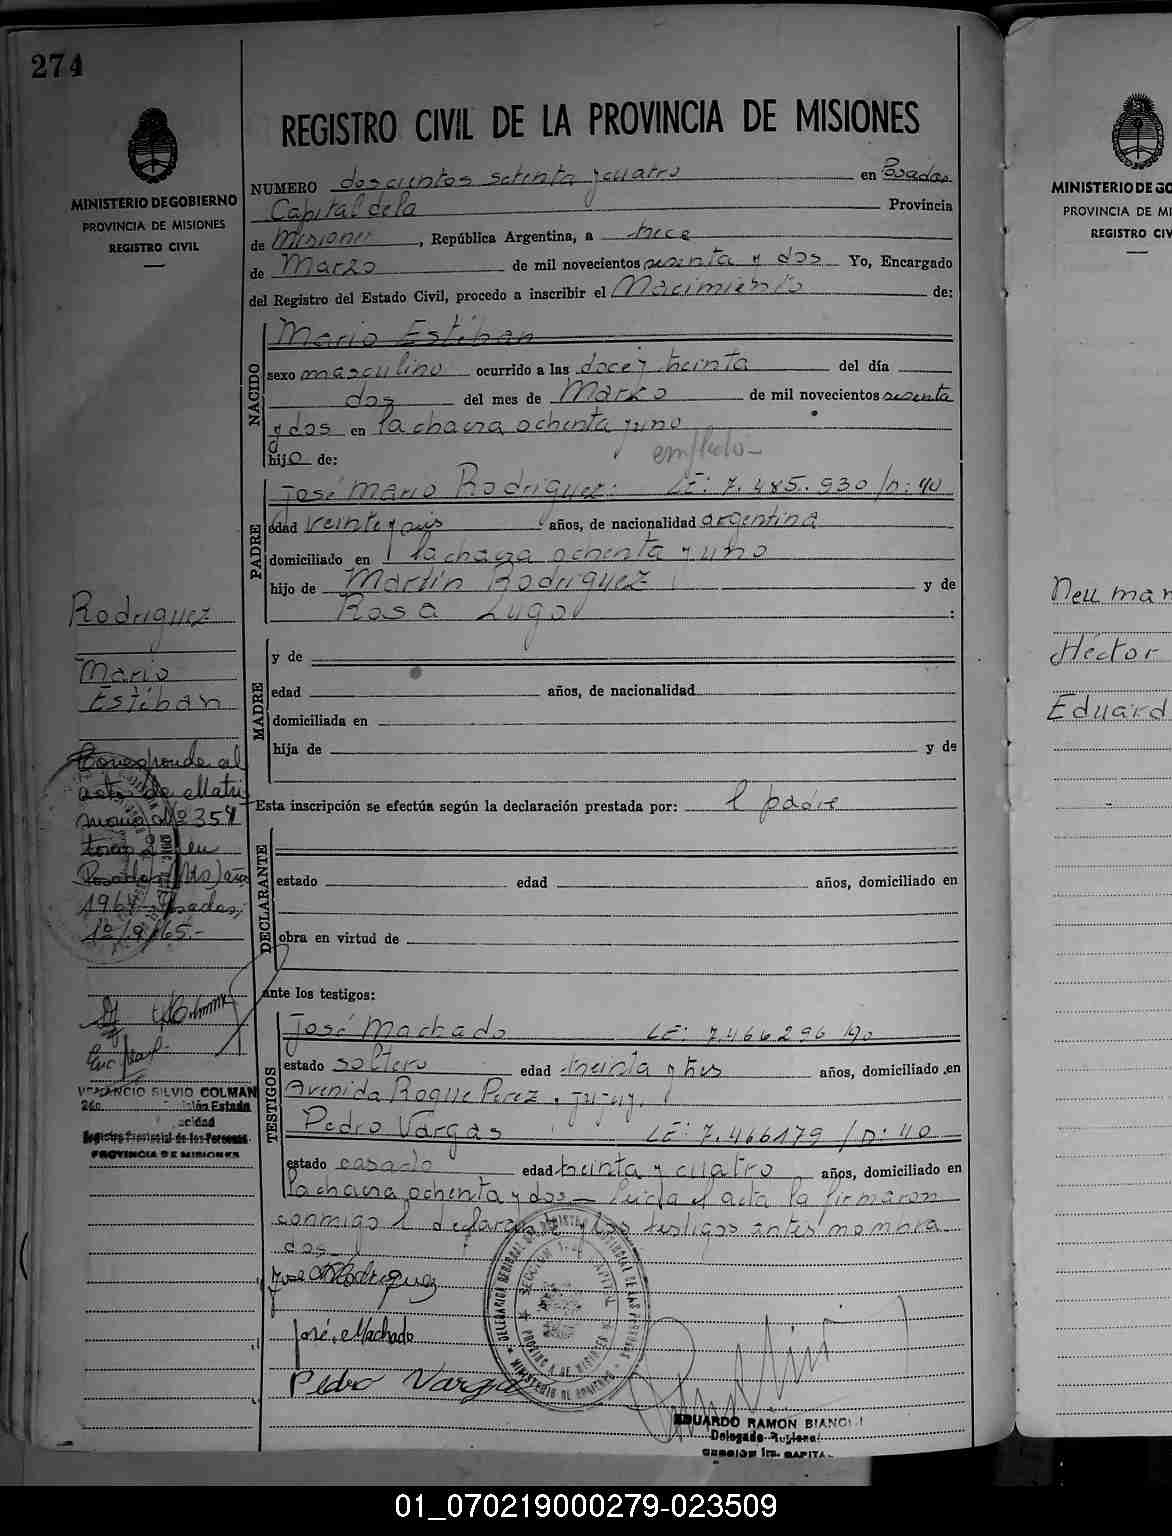 274
MINISTERIO DE GOBIERNO
PROVINCIA DE MISIONES
REGISTRO CIVIL
REGISTRO CIVIL DE LA PROVINCIA DE MISIONES
NUMERO doscientos setenta y cuatro en Posadas
Capital de la Provincia
de Misiones, República Argentina, a trece
de Marzo de mil novecientos sesenta y dos Yo, Encargado
del Registro del Estado Civil, procedo a inscribir el Nacimiento de:
NACIDO
Mario Estéban
sexo masculino ocurrido a las doce y treinta del día
dos del mes de Marzo de mil novecientos sesenta
y dos en la chacra ochenta y uno
hijo de:
empledo-
PADRE
José Mario Rodriguez: LE: 7.485.930 / D: 40
edad veinte y seis años, de nacionalidad argentina
domiciliado en la chacra ochenta y uno
hijo de Martín Rodriguez y de
Rosa Lugo :
MADRE
y de
edad años, de nacionalidad
domiciliada en
hija de y de
Esta inscripción se efectúa según la declaración prestada por: el padre
DECLARANTE
estado edad años, domiciliado en
obra en virtud de
ante los testigos:
TESTIGOS
José Machado LE: 7.466.296 /40
estado soltero edad treinta y tres años, domiciliado en
Avenida Roque Perez
Pedro Vargas LE: 7.466179 / D: 40
estado casado edad treinta y cuatro años, domiciliado en
la chacra ochenta y dos - leída el acta la firmaron
conmigo el declarante y los testigos antes nombra
dos-
Jose M Rodriguez
José Machado
Pedro Vargas
EDUARDO RAMON BIANCHI
Delegado Regional
SECCION 1ra. CAPITAL
Rodriguez
Mario
Estéban
Corresponde al
acta de Matri
monio Nº 354
tomo 2 en
Posadas (Mnes) año
1964 - Posadas,
1º/9/65.-
VENANCIO SILVIO COLMAN
Registro Provincial de las Personas
PROVINCIA DE MISIONES
MINISTERIO DE GO
PROVINCIA DE MI
REGISTRO CIV
Neuman
Héctor
Eduard
01_070219000279-023509